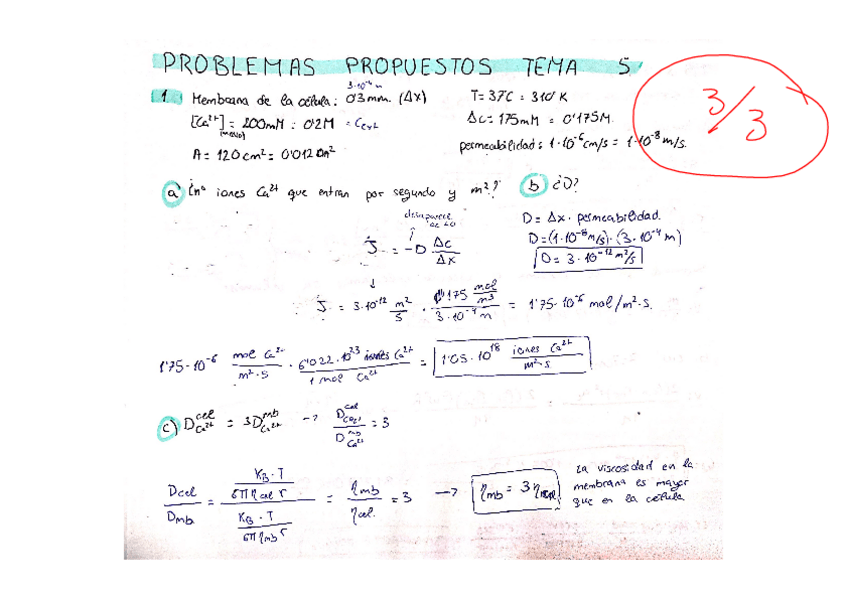 PROBLEMAS PROPUESTOS TEMA 5
3/3
1. Membrana de la célula: 0'3 mm. (Δx)
3·10⁻⁴ m
T = 37C = 310 K
[Ca²⁺] = 200mM = 0'2M = C
(medio)
Δc = 175mM = 0'175M
A = 120 cm² = 0'0120m²
permeabilidad = 1·10⁻⁶ cm/s = 1·10⁻⁸ m/s.
a) ¿nº iones Ca²⁺ que entran por segundo y m²?
b) ¿D?
J = -D Δc/Δx
D = Δx · permeabilidad.
D = (1·10⁻⁸ m/s) · (3·10⁻⁴ m)
D = 3·10⁻¹² m²/s
J = 3·10⁻¹² m²/s · 175 mol/m³ / 3·10⁻⁴ m = 1'75·10⁻⁶ mol/m²·s.
1'75·10⁻⁶ mol Ca²⁺/m²·s · 6'022·10²³ iones Ca²⁺/1 mol Ca²⁺ = 1'05·10¹⁸ iones Ca²⁺/m²·s
c) D cel Ca²⁺ = 3D mb Ca²⁺ → D cel Ca²⁺ / D mb Ca²⁺ = 3
Dcel/Dmb = (K_B·T / 6πη cel r) / (K_B·T / 6πη mb r) = η mb / η cel. = 3 → η mb = 3 η cel
La viscosidad en la
membrana es mayor
que en la célula